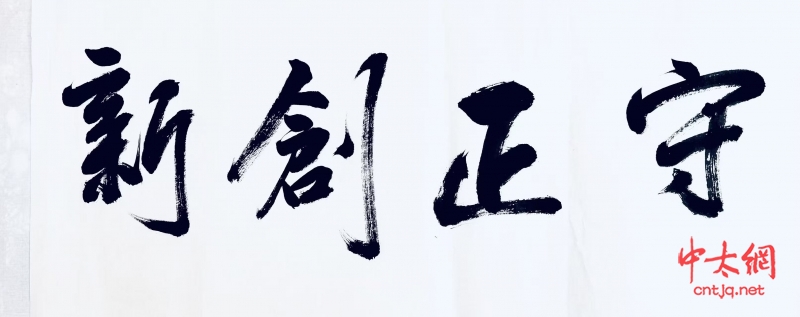 守正創新
中太網
cntjq.net